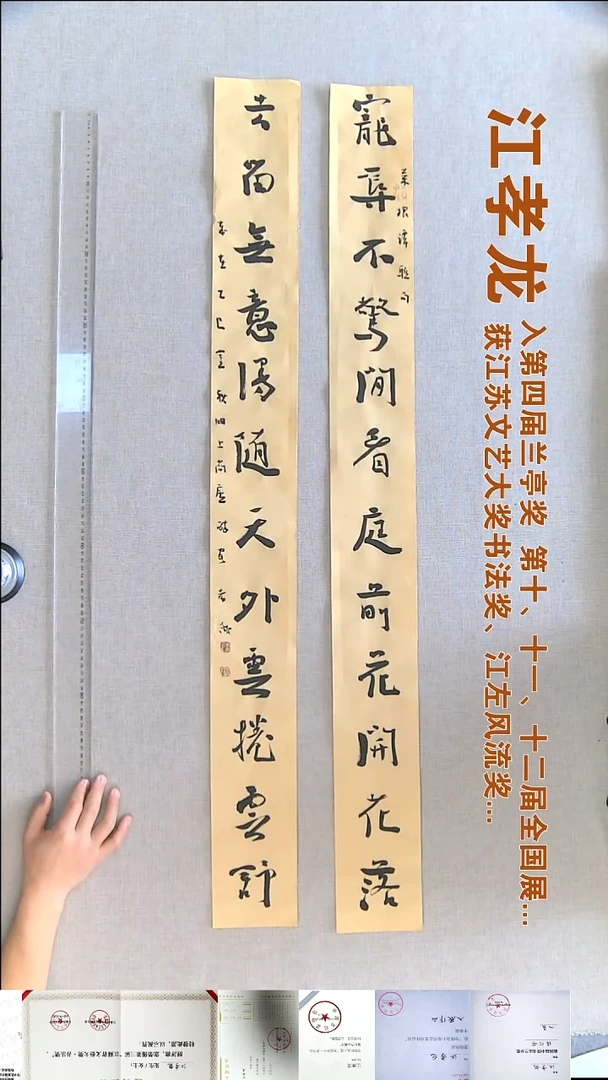 江孝龙
入第四届兰亭奖 第十、十一、十二届全国展...
获江苏文艺大奖书法奖、江左风流奖...
菜根譚聯句
寵辱不驚閒看庭前花開花落
去留無意漫随天外雲捲雲舒
歲在乙巳金秋泗上尚虛